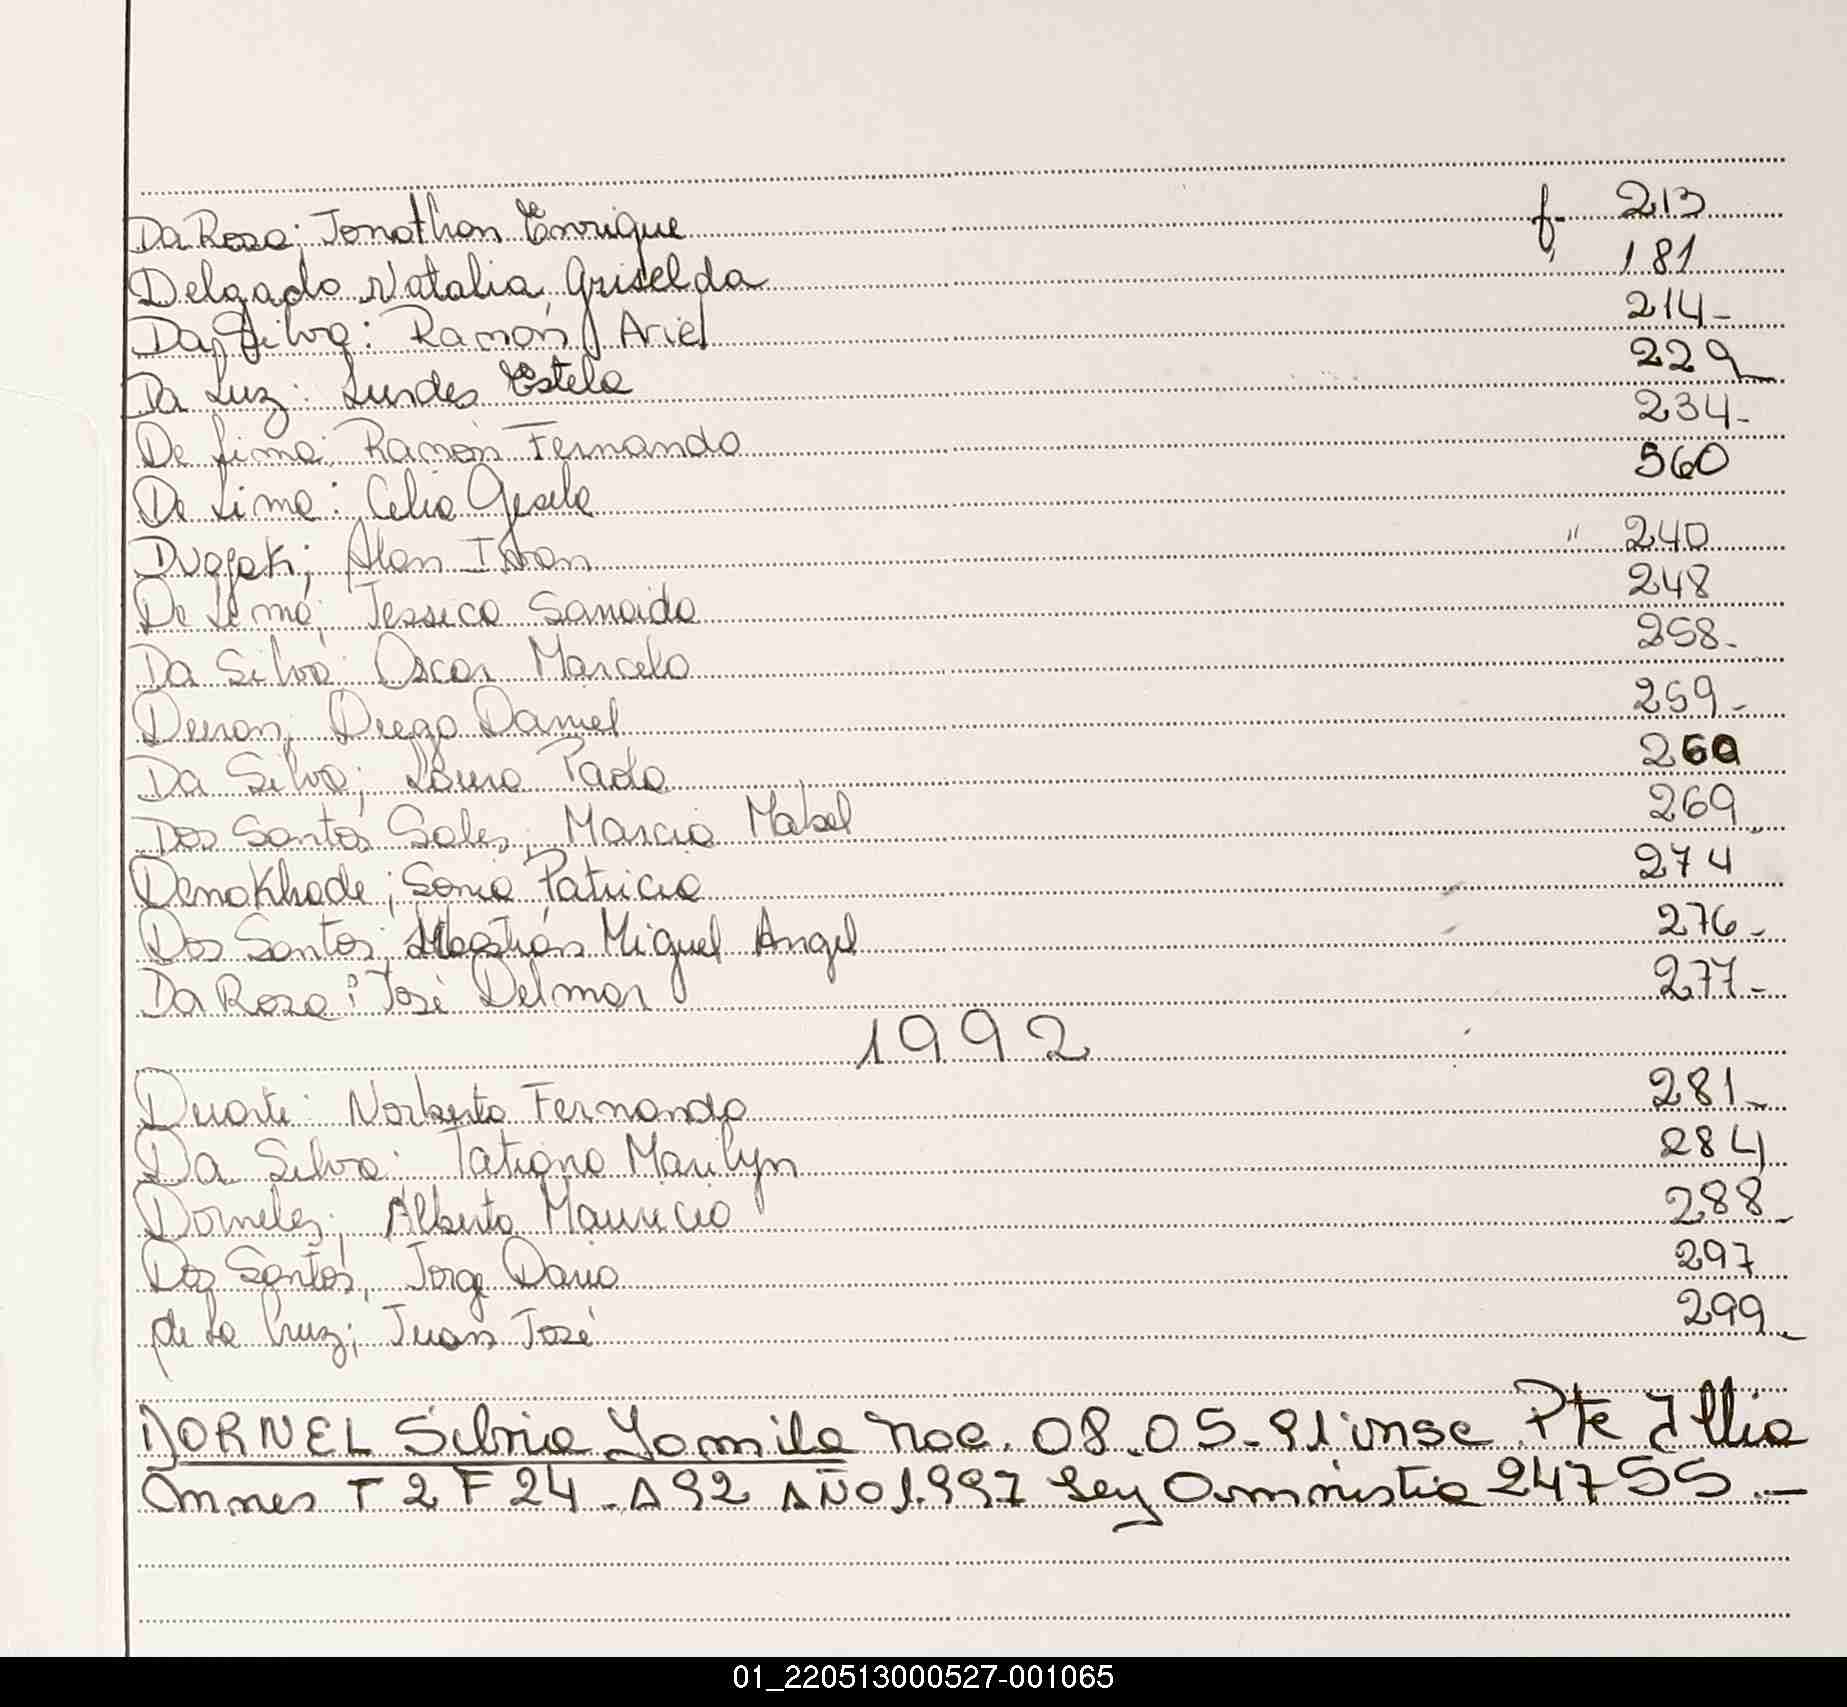 Da Rosa; Jonathan Enrique f. 213
Delgado Natalia Griselda 181
Da Silva: Ramón Ariel 214-
Da Luz: Lurdes Estela 229
De Lima; Ramón Fernando 234-
De Lima: Celia Gesela 560
Dvojak; Alan Ivan " 240
De Lima; Jessica Sanaida 248
Da Silva: Oscar Marcelo 258-
Deiron; Diego Daniel 259-
Da Silva; Laura Paola 260
Dos Santos Sales; Marcia Mabel 269
Demokhade; Sonia Patricia 274
Dos Santos; Sebastián Miguel Angel 276-
Da Rosa; José Delmar 277-
1992
Duarte: Norberto Fernando 281-
Da Silva: Tatiana Marilyn 284
Dorneles; Alberto Mauricio 288-
Dos Santos, Jorge Dario 297
de La Cruz; Juan José 299-
DORNEL Silvia Yamila Nac. 08.05-91 insc Pte Illia
T 2 F 24 - A 92 AÑO 1.997 Ley Amnistia 24755.-
01_220513000527-001065